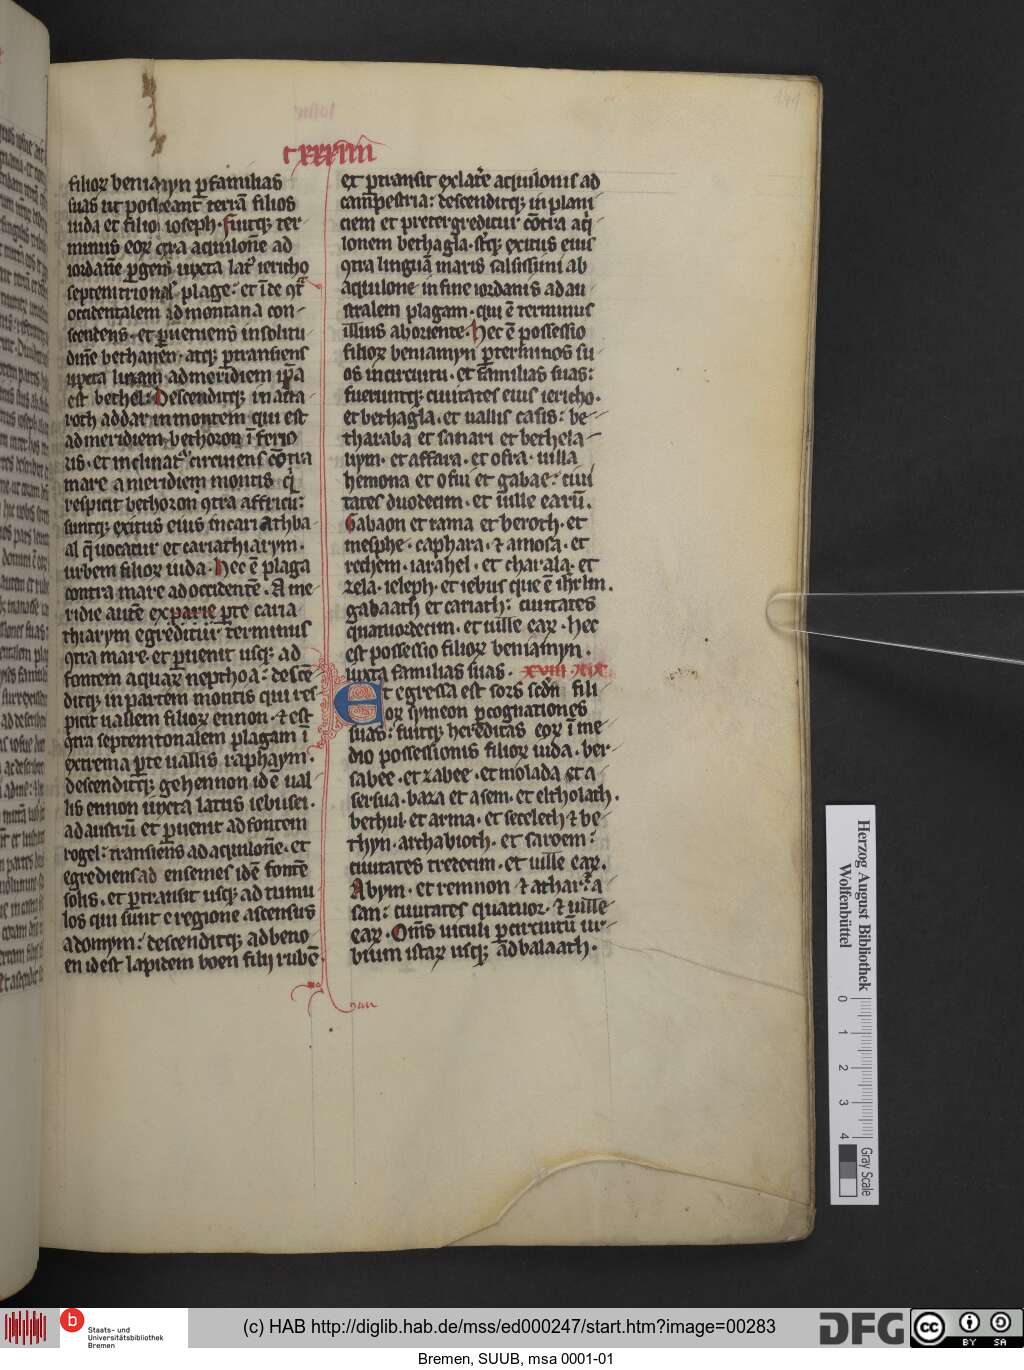 cxxxiiii
141
filioꝝ beniamyn ꝑ familias
suas ut possideant terrā filios
iuda et filios ioseph. fuitqꝫ ter
minus eoꝝ ꝯtra aquilonē ad
iordanē ꝑgens iuxta lat᷒ iericho
septentrional᷒ plage: et īde ꝯt᷑
occidentalem ad montana con
scendens. et ꝑueniens in solitu
dinē bethauen. atqꝫ ꝑtransiens
iuxta luzam ad meridiem ip̄a
est bethel: Descenditqꝫ in atta
roth addar in montem qui est
ad meridiem bethoron īferio
ris. et inclinat᷑ circuiens cōtra
mare a meridiem montis q̇
respicit bethoron ꝯtra affricū:
suntqꝫ exitus eius in cariathba
al q̄ uocatur et cariathiarym.
urbem filioꝝ iuda. Hec ē plaga
contra mare ad occidentē. A me
ridie autē ex parte ꝑte caria
thiarym egreditur terminus
ꝯtra mare. et ꝑuenit usqꝫ ad
fontem aquaꝝ nepthoa: descē
ditqꝫ in partem montis qui res
picit uallem filioꝝ ennon. ⁊ est
ꝯtra septemtrionalem plagam ī
extrema ꝑte uallis raphaym.
descenditqꝫ gehennon idē ual
lis ennon iuxta latus iebusei.
ad austrū et ꝑuenit ad fontem
rogel: transiens ad aquilonē. et
egrediens ad ensemes idē fontē
solis. et ꝑtransit usqꝫ ad tumu
los qui sunt e regione ascensus
adomym: descenditqꝫ ad beno
en id est lapidem boen filij rubē.
et ꝑtransit ex latere aquilonis ad
campestria: descenditqꝫ in plani
ciem et pretergreditur cōtra aq̇
lonem bethagla. sūtqꝫ exitus eius
ꝯtra linguā maris salsissimi ab
aquilone in fine iordanis ad au
stralem plagam. qui ē terminus
illius ab oriente. Hec ē possessio
filioꝝ beniamyn ꝑ terminos su
os in circuitu. et familias suas:
fueruntqꝫ ciuitates eius iericho.
et bethagla. et uallis casis: be
tharaba et sanari et bethela
uym. et affara. et ofra. uilla
hemona et ofni et gabae: ciui
tates duodecim. et uille earū.
Gabaon et rama et beroth. et
mesphe. caphara. ⁊ amosa. et
rechem. iarahel. et tharala. et
zela. ieleph. et iebus que ē ihrlm.
gabaath et cariath: ciuitates
quatuordecim. et uille eaꝝ. Hec
est possessio filioꝝ beniamyn.
iuxta familias suas. xviii xix.
Et egressa est sors scd̄a fili
oꝝ symeon ꝑ cognationes
suas: fuitqꝫ hereditas eoꝝ ī me
dio possessionis filioꝝ iuda. ber
sabee. et zabee. et molada et a
sersua. baza et asem. et eltholath.
bethul et arma. et secelech ⁊ be
thym. archabioth. et saroem:
ciuitates tredecim. et uille eaꝝ.
Abym. et remnon ⁊ athar: a
san: ciuitates quatuor. ⁊ uille
eaꝝ. Oms uiculi ꝑ circuitū ur
bium istaꝝ usqꝫ ad balaath.
Herzog August Bibliothek
Wolfenbüttel
0 1 2 3 4
Gray Scale
b
Staats- und
Universitätsbibliothek
Bremen
(c) HAB http://diglib.hab.de/mss/ed000247/start.htm?image=00283
DFG
cc BY SA
Bremen, SUUB, msa 0001-01